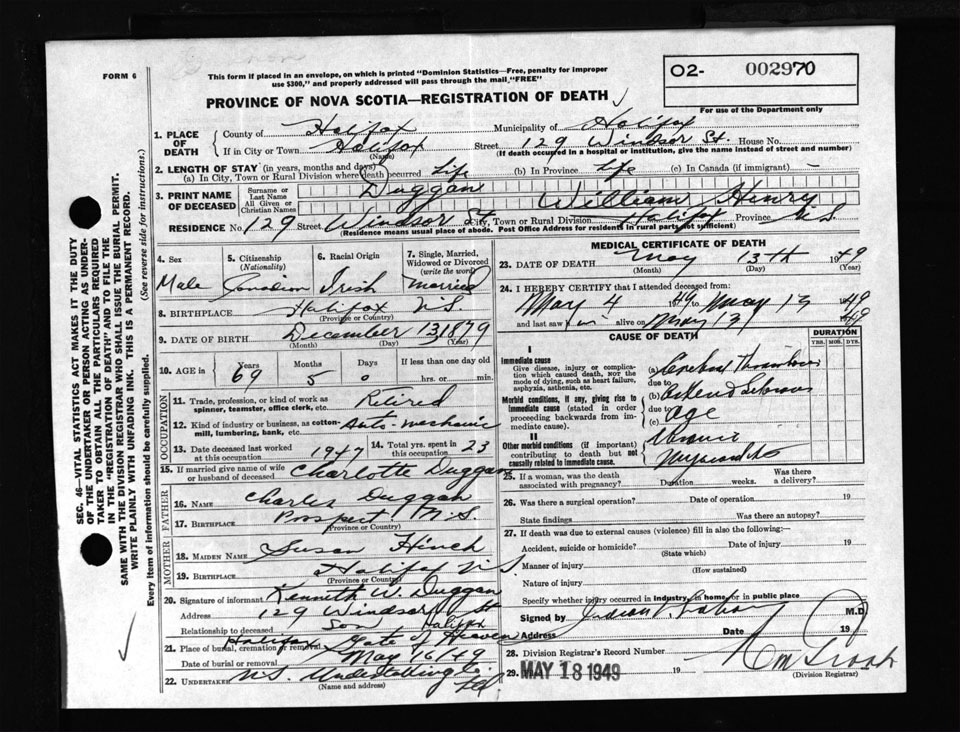 FORM 6
This form if placed in an envelope, on which is printed "Dominion Statistics—Free, penalty for improper
use $300," and properly addressed will pass through the mail, "FREE"
O2- 002970
For use of the Department only
PROVINCE OF NOVA SCOTIA—REGISTRATION OF DEATH
1. PLACE OF DEATH
County of Halifax Municipality of Halifax
If in City or Town Halifax Street 129 Windsor St. House No.
(Name) (If death occured in a hospital or institution, give the name instead of street and number)
2. LENGTH OF STAY (in years, months and days)
(a) In City, Town or Rural Division where death occurred Life (b) In Province Life (c) In Canada (if immigrant) -
3. PRINT NAME OF DECEASED
Surname or Last Name Duggan
All Given or Christian Names William Henry
RESIDENCE No. 129 Street Windsor St City, Town or Rural Division Halifax Province N S
(Residence means usual place of abode. Post Office Address for Residents in rural parts not sufficient)
4. Sex 5. Citizenship (Nationality) 6. Racial Origin 7. Single, Married, Widowed or Divorced (write the word)
Male Canadian Irish Married
8. BIRTHPLACE Halifax N.S.
(Province or Country)
9. DATE OF BIRTH December 13 1879
(Month) (Day) (Year)
10. AGE in Years Months Days If less than one day old
69 5 0 hrs. or min.
OCCUPATION
11. Trade, profession, or kind of work as spinner, teamster, office clerk, etc. Retired
12. Kind of industry or business, as cotton-mill, lumbering, bank, etc. Auto-mechanic
13. Date deceased last worked at this occupation 1947 14. Total yrs. spent in this occupation 23
15. If married give name of wife or husband of deceased Charlotte Duggan
FATHER
16. Name Charles Duggan
17. Birthplace Prospect N.S.
(Province or Country)
MOTHER
18. MAIDEN NAME Susan Hinch
19. BIRTHPLACE Halifax N.S.
(Province or Country)
20. Signature of informant Kenneth W. Duggan
Address 129 Windsor St Halifax
Relationship to deceased Son
21. Place of burial, cremation or removal Halifax Gate of Heaven
Date of burial or removal May 16/49
22. UNDERTAKER N.S. Undertaking Co. Ltd.
(Name and address)
MEDICAL CERTIFICATE OF DEATH
23. DATE OF DEATH May 13th 1949
(Month) (Day) (Year)
24. I HEREBY CERTIFY that I attended deceased from:
May 4 1949 to May 13 1949
and last saw him alive on May 13 1949
CAUSE OF DEATH DURATION
YRS. MOS. DYS.
I
Immediate cause
Give disease, injury or complication which caused death, NOT the mode of dying, such as heart failure, asphyxia, asthenia, etc.
(a) Cerebral Thrombosis
due to
Morbid conditions, if any, giving rise to immediate cause (stated in order proceeding backwards from immediate cause).
(b)
due to
(c) Age
II
Other morbid conditions (if important) contributing to death but not causally related to immediate cause.
Chronic
25. If a woman, was the death associated with pregnancy? Duration weeks. Was there a delivery?
26. Was there a surgical operation? Date of operation 19
State findings Was there an autopsy?
27. If death was due to external causes (violence) fill in also the following:—
Accident, suicide or homicide? Date of injury 19
(State which)
Manner of injury
(How sustained)
Nature of injury
Specify whether injury occurred in industry, in home, or in public place
Signed by M.D.
Address Date 19
28. Division Registrar's Record Number
29. MAY 18 1949 19
(Division Registrar)
SEC. 46—VITAL STATISTICS ACT MAKES IT THE DUTY
OF THE UNDERTAKER OR PERSON ACTING AS UNDERTAKER
TO OBTAIN ALL THE PARTICULARS REQUIRED
IN THE "REGISTRATION OF DEATH" AND TO FILE THE
SAME WITH THE DIVISION REGISTRAR WHO SHALL ISSUE THE BURIAL PERMIT.
WRITE PLAINLY WITH UNFADING INK. THIS IS A PERMANENT RECORD.
Every item of information should be carefully supplied. (See reverse side for instructions.)